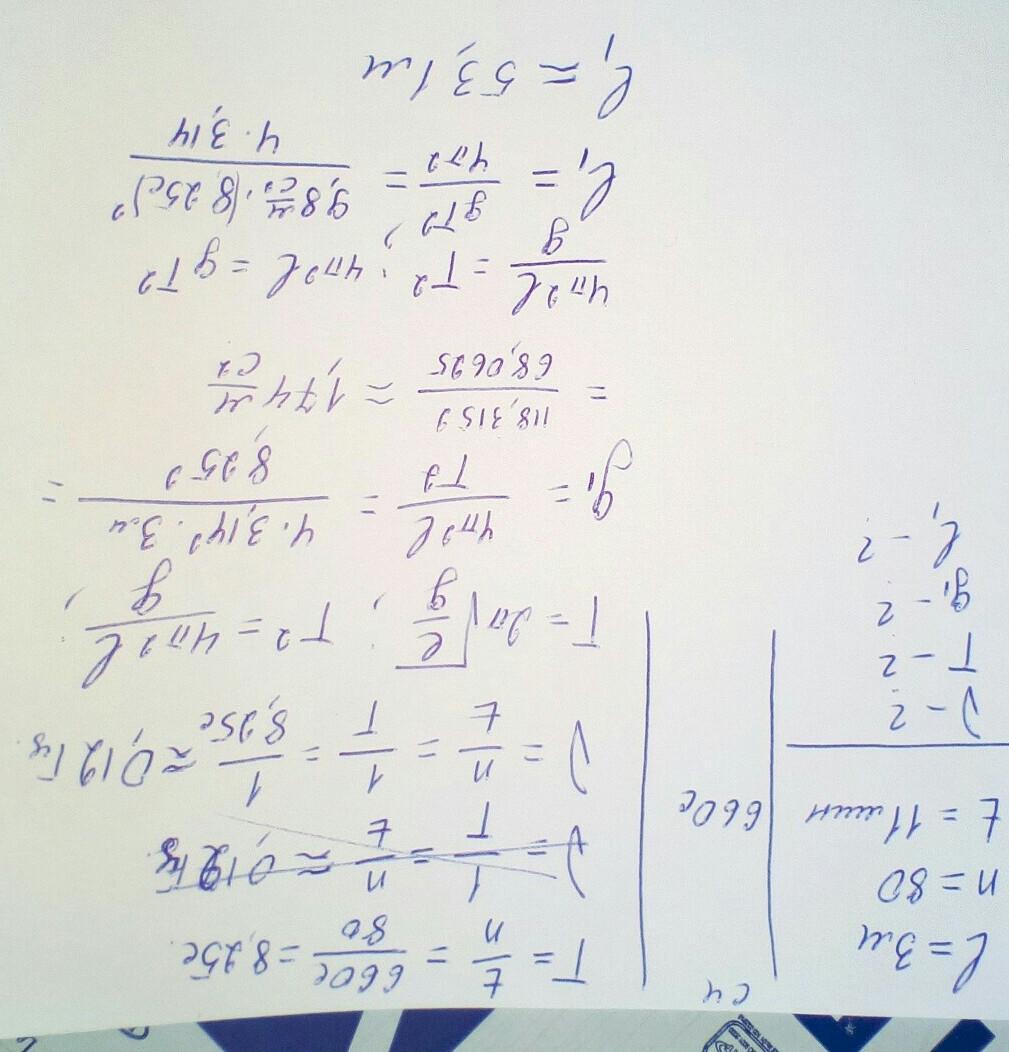 СИ
l = 3м
n = 80
t = 11 мин
660с
ν - ?
T - ?
g₁ - ?
l₁ - ?
T = t/n = 660с/80 = 8,25с
ν = 1/T = n/t ≈ 0,12 Гц
ν = n/t = 1/T = 1/8,25с ≈ 0,12 Гц
T = 2π√(l/g) ; T² = 4π²l/g ;
g₁ = 4π²l/T² = 4·3,14²·3м/8,25² =
= 118,3152/68,0625 ≈ 1,74 м/с²
4π²l/g = T² ; 4π²l = gT²
l₁ = gT²/4π² ; = 9,8 м/с²·(8,25с)²/4·3,14
l₁ ≈ 53,1м